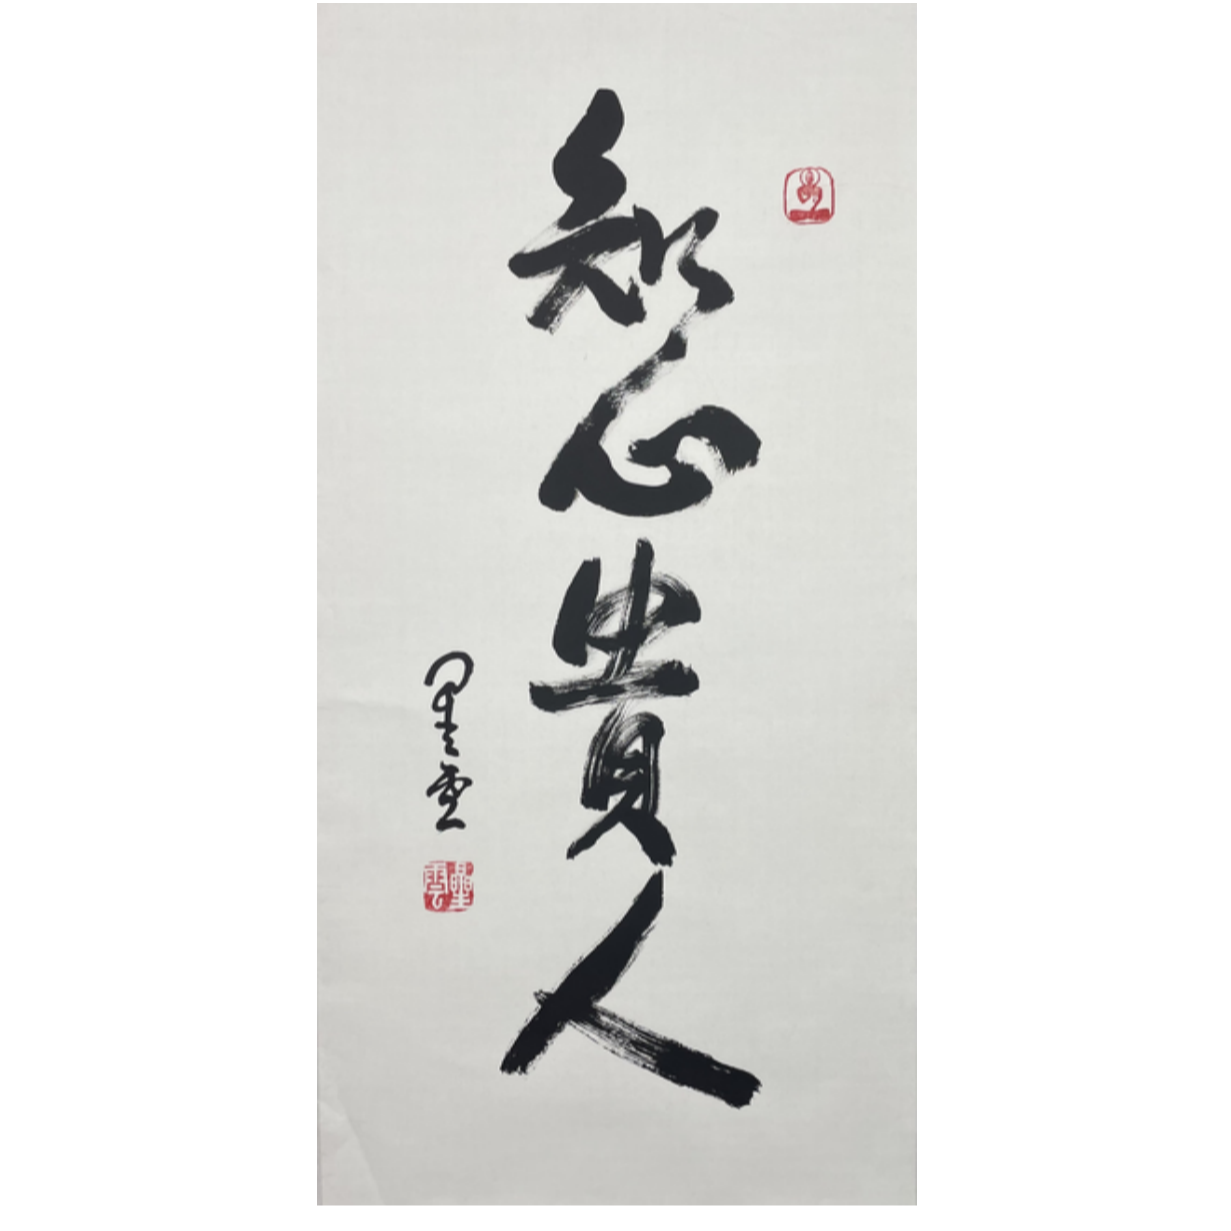 知心貴人
星雲
星雲